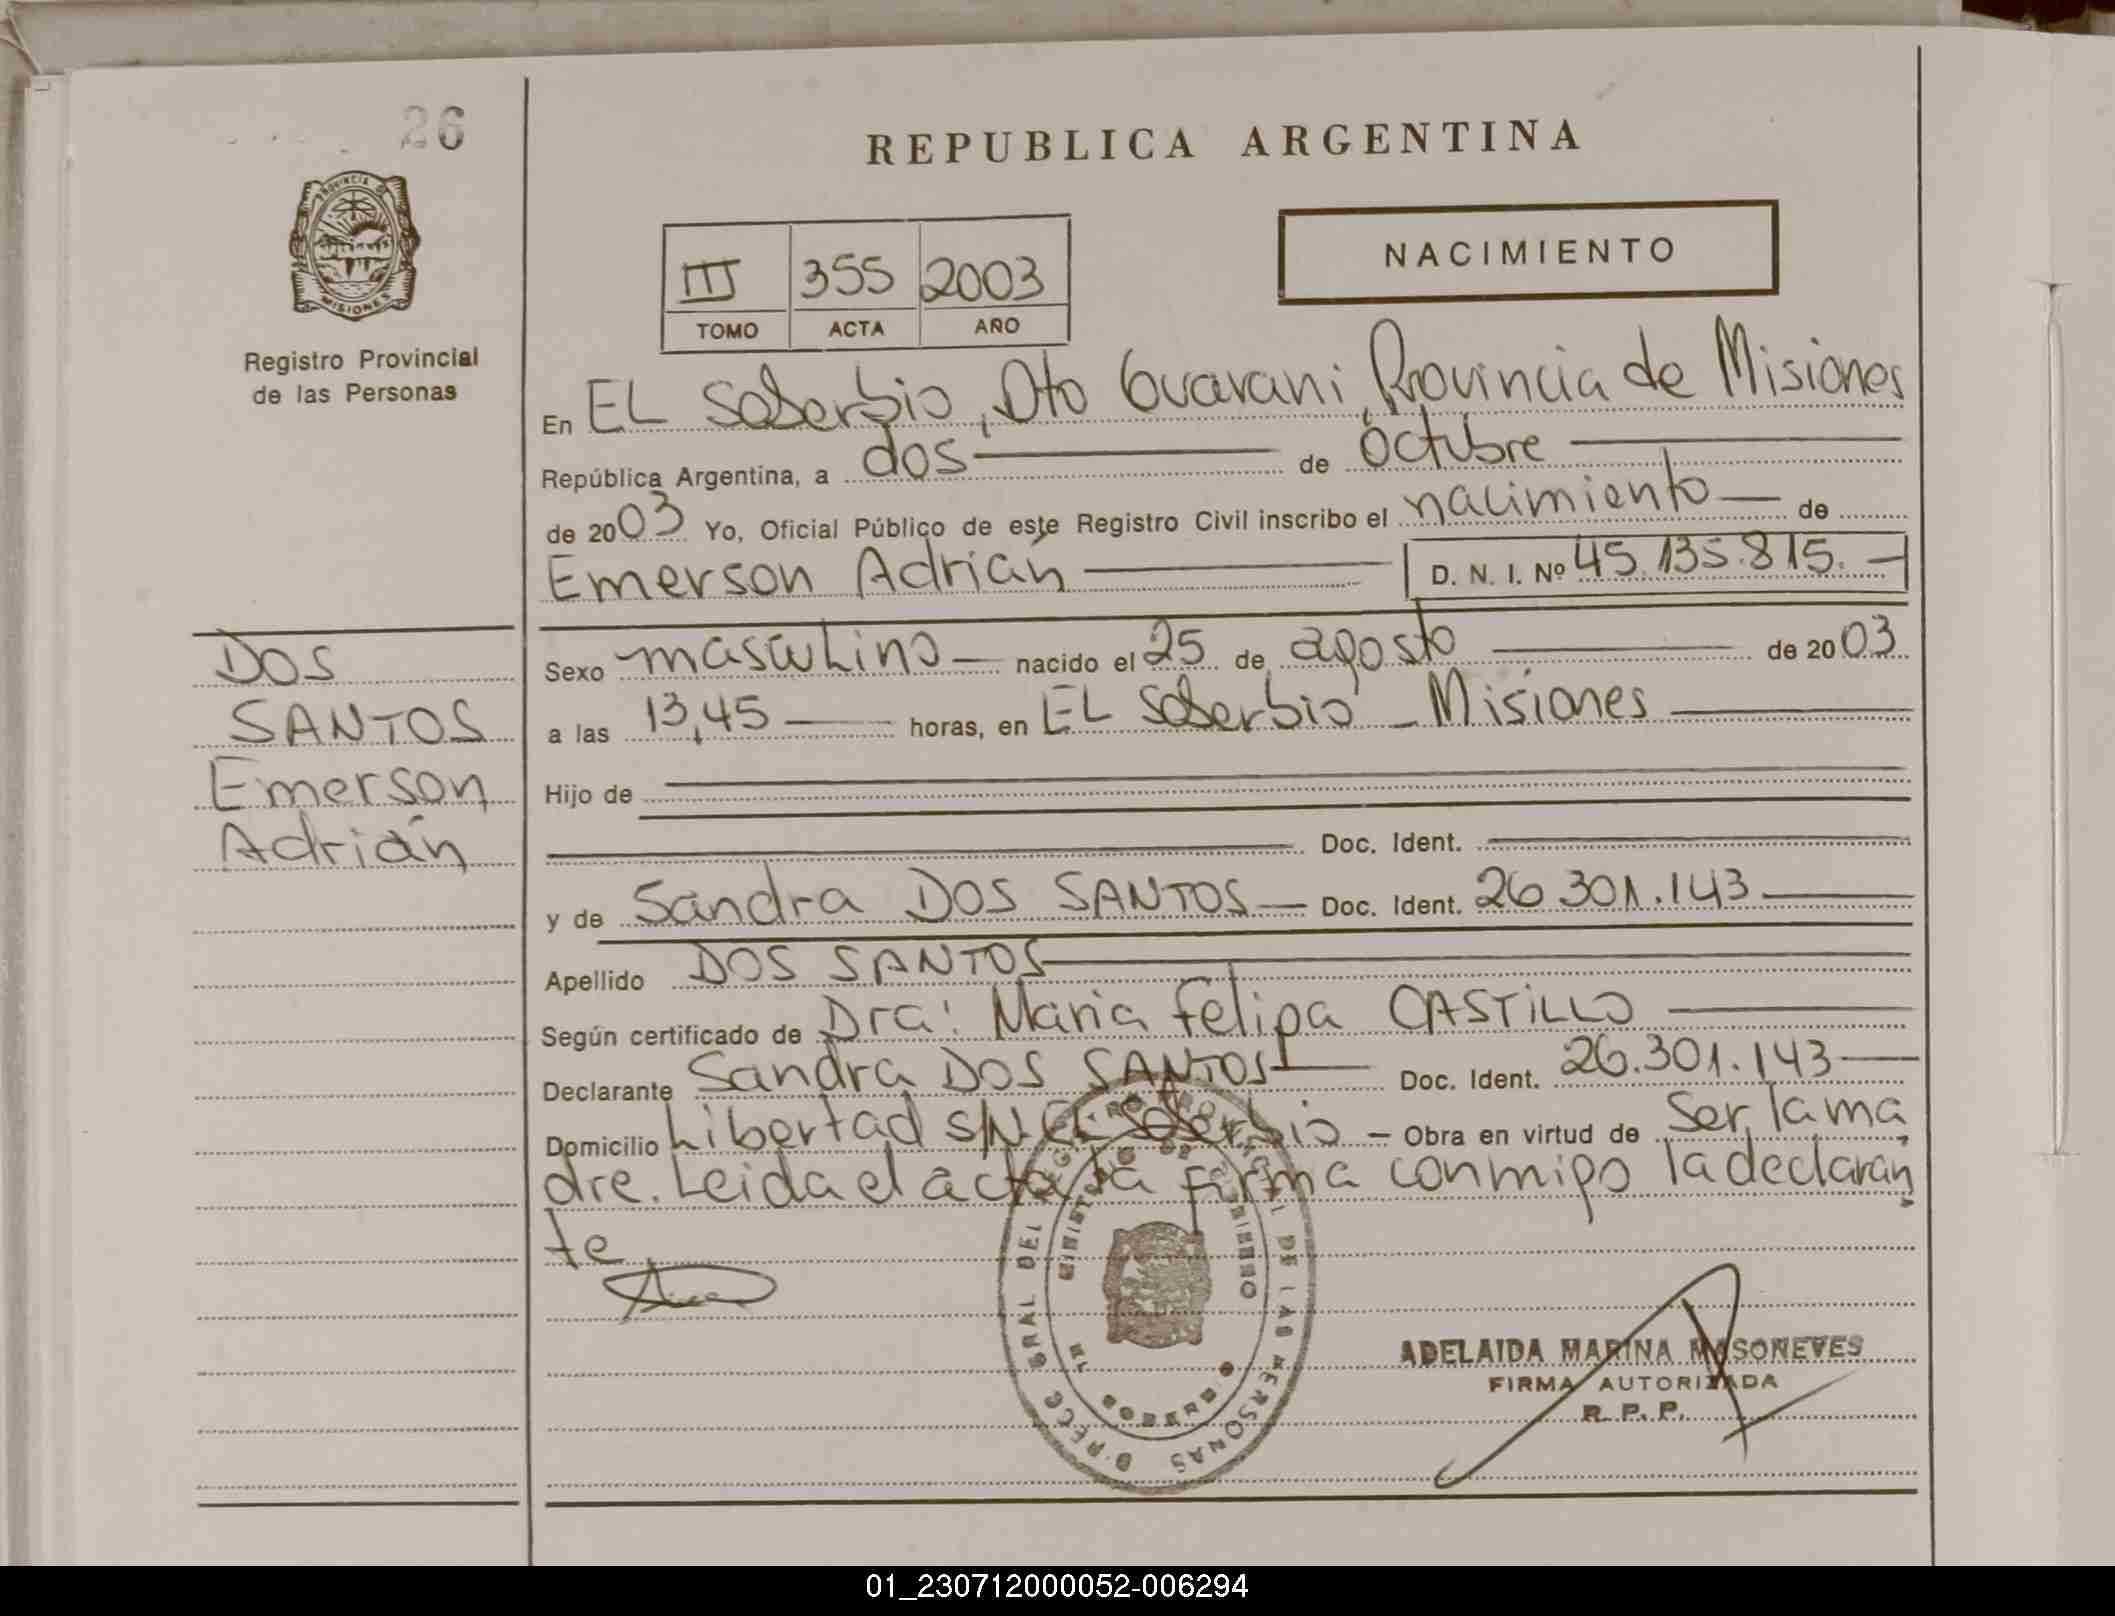 26
PROVINCIA DE
MISIONES
Registro Provincial
de las Personas
REPUBLICA ARGENTINA
III 355 2003
TOMO ACTA AÑO
NACIMIENTO
En EL Soberbio, Dto Guarani, Provincia de Misiones
República Argentina, a dos de octubre
de 2003 Yo, Oficial Público de este Registro Civil inscribo el nacimiento de
Emerson Adrián D. N. I. Nº 45.135.815.
DOS
SANTOS
Emerson
Adrián
Sexo masculino nacido el 25 de agosto de 2003
a las 13,45 horas, en EL Soberbio - Misiones
Hijo de
Doc. Ident.
y de Sandra DOS SANTOS Doc. Ident. 26.301.143
Apellido DOS SANTOS
Según certificado de Dra: Maria Felipa CASTILLO
Declarante Sandra DOS SANTOS Doc. Ident. 26.301.143
Domicilio Libertad S/N EL Soberbio - Obra en virtud de Ser la ma
dre. Leida el acta la firma conmigo la declaran
te
ADELAIDA MARINA MASONEVES
FIRMA AUTORIZADA
R. P. P.
01_230712000052-006294